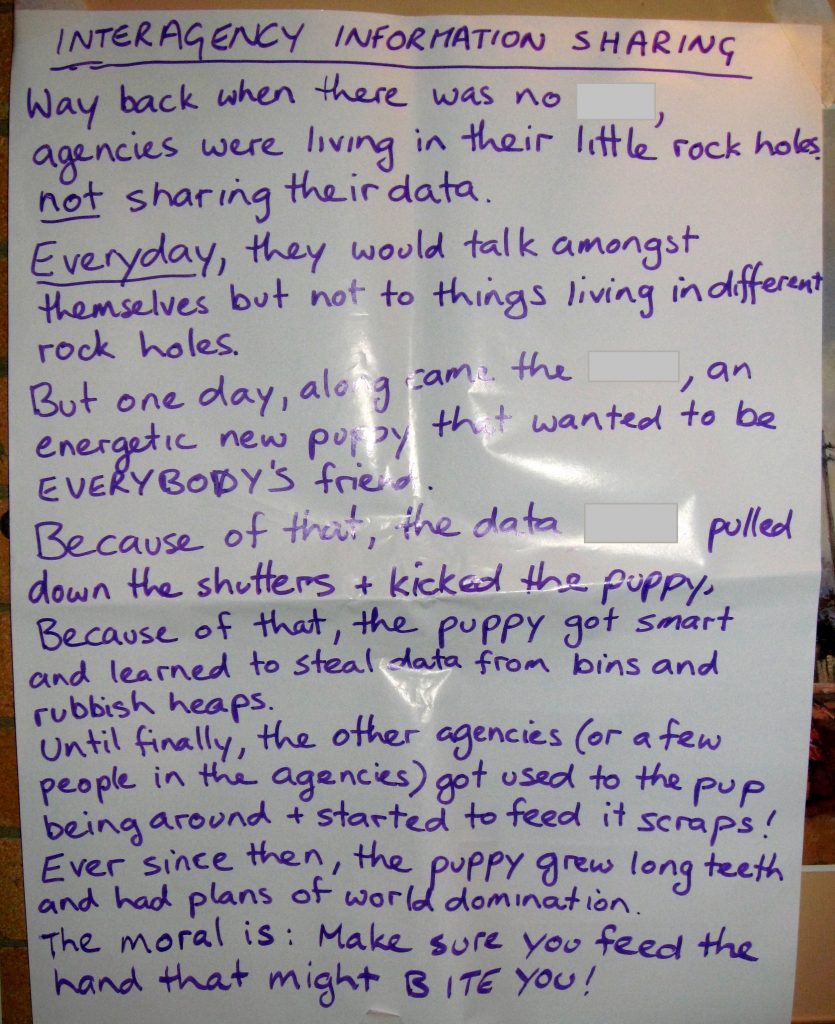 INTERAGENCY INFORMATION SHARING
Way back when there was no ,
agencies were living in their little rock holes.
not sharing their data.
Everyday, they would talk amongst
themselves but not to things living in different
rock holes.
But one day, along came the , an
energetic new puppy that wanted to be
EVERYBODY'S friend.
Because of that, the data pulled
down the shutters + kicked the puppy.
Because of that, the puppy got smart
and learned to steal data from bins and
rubbish heaps.
Until finally, the other agencies (or a few
people in the agencies) got used to the pup
being around + started to feed it scraps!
Ever since then, the puppy grew long teeth
and had plans of world domination.
The moral is: Make sure you feed the
hand that might BITE YOU!